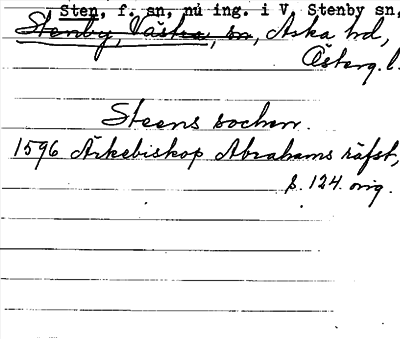 Sten, f. sn, nu ing. i V. Stenby sn,
Stenby, Västra, sn, Aska hd,
Österg. l.
Steens sochen.
1596 Ärkebiskop Abrahams räfst,
s. 124. orig.